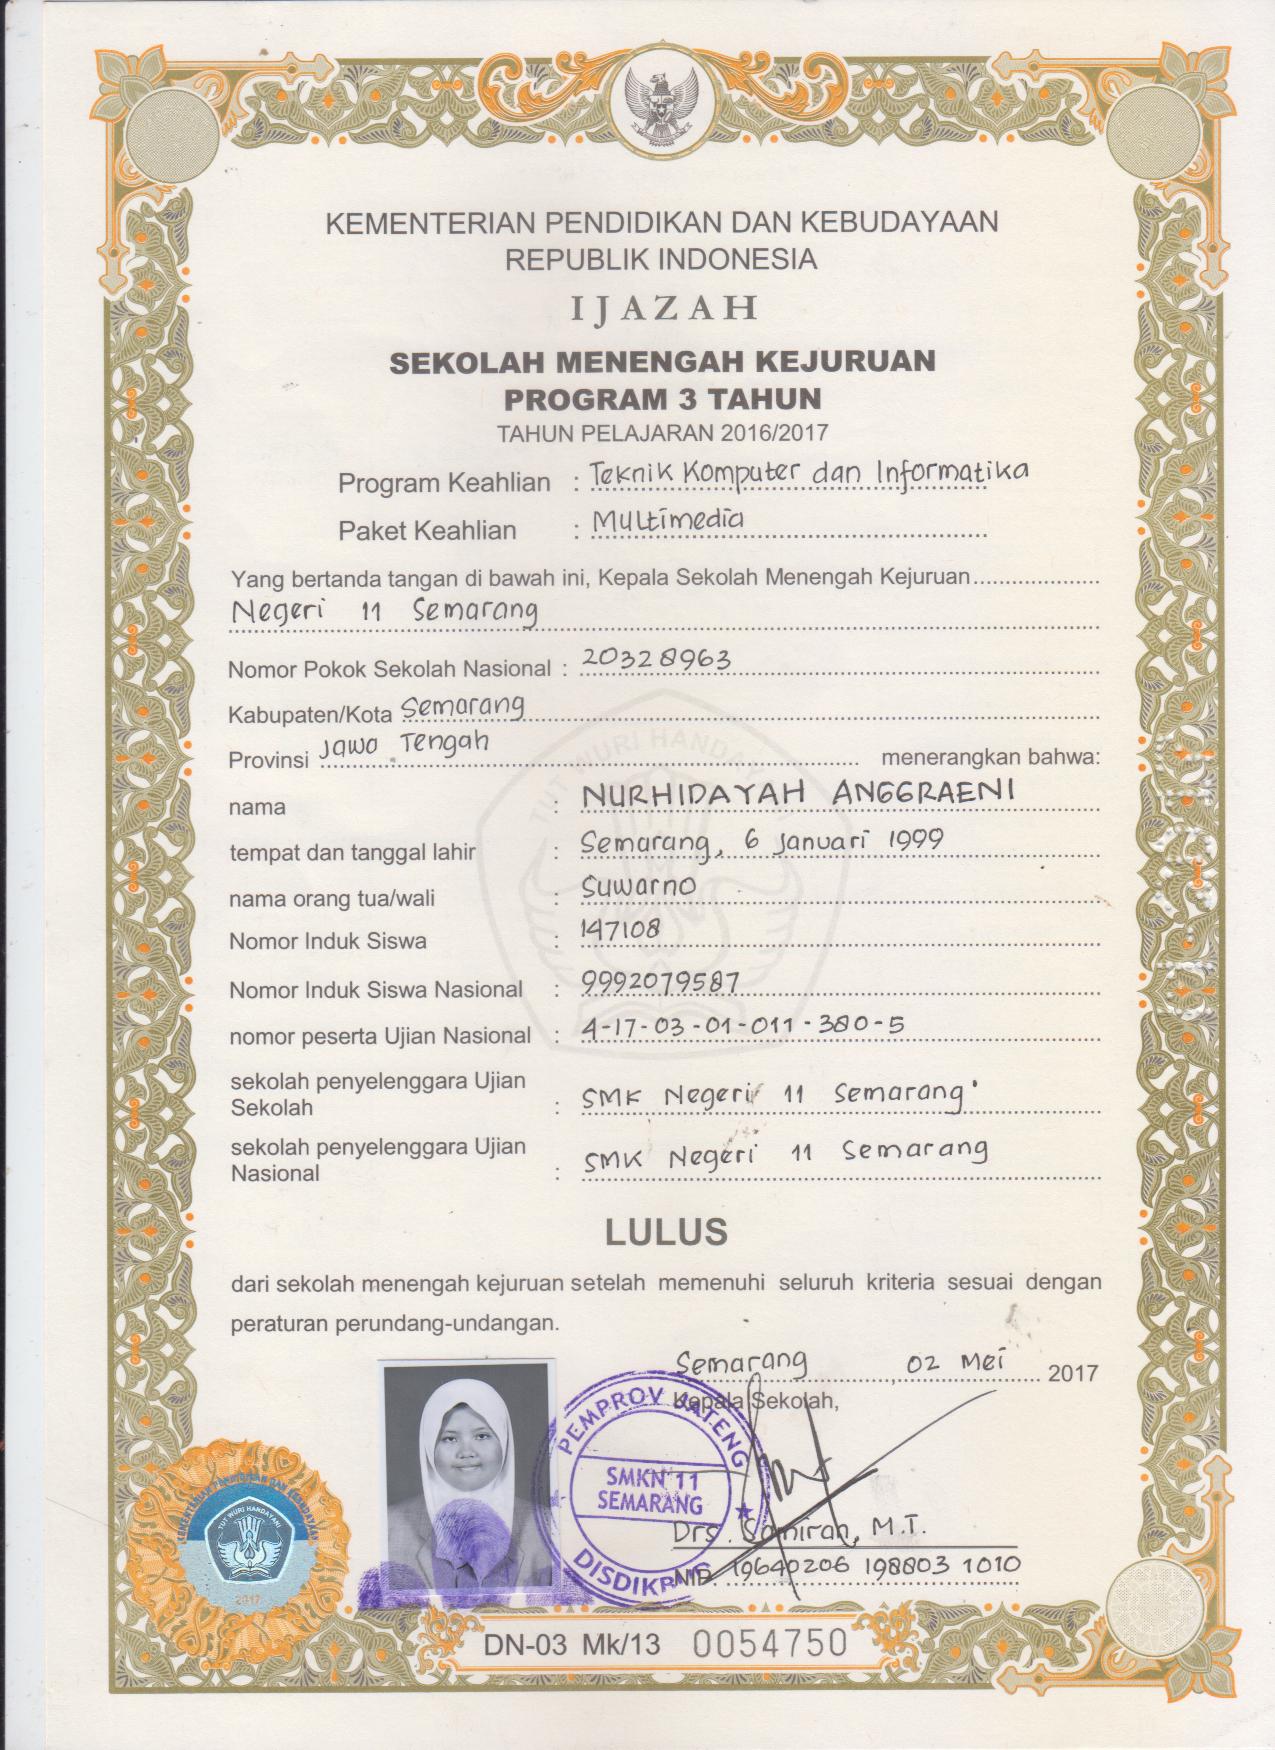 KEMENTERIAN PENDIDIKAN DAN KEBUDAYAAN
REPUBLIK INDONESIA
IJAZAH
SEKOLAH MENENGAH KEJURUAN
PROGRAM 3 TAHUN
TAHUN PELAJARAN 2016/2017
Program Keahlian : Teknik Komputer dan Informatika
Paket Keahlian : Multimedia
Yang bertanda tangan di bawah ini, Kepala Sekolah Menengah Kejuruan
Negeri 11 Semarang
Nomor Pokok Sekolah Nasional : 20328963
Kabupaten/Kota Semarang
Provinsi Jawa Tengah menerangkan bahwa:
nama : NURHIDAYAH ANGGRAENI
tempat dan tanggal lahir : Semarang, 6 Januari 1999
nama orang tua/wali : Suwarno
Nomor Induk Siswa : 147108
Nomor Induk Siswa Nasional : 9992079587
nomor peserta Ujian Nasional : 4-17-03-01-011-380-5
sekolah penyelenggara Ujian
Sekolah : SMK Negeri 11 Semarang
sekolah penyelenggara Ujian
Nasional : SMK Negeri 11 Semarang
LULUS
dari sekolah menengah kejuruan setelah memenuhi seluruh kriteria sesuai dengan
peraturan perundang-undangan.
Semarang, 02 Mei 2017
Kepala Sekolah,
PEMPROV JATENG
SMKN 11
SEMARANG
Drs. Samiran, M.T.
NIP. 19640206 198803 1010
TUT WURI HANDAYANI
KEMENTERIAN PENDIDIKAN DAN KEBUDAYAAN
TUT WURI HANDAYANI
2017
DN-03 Mk/13 0054750